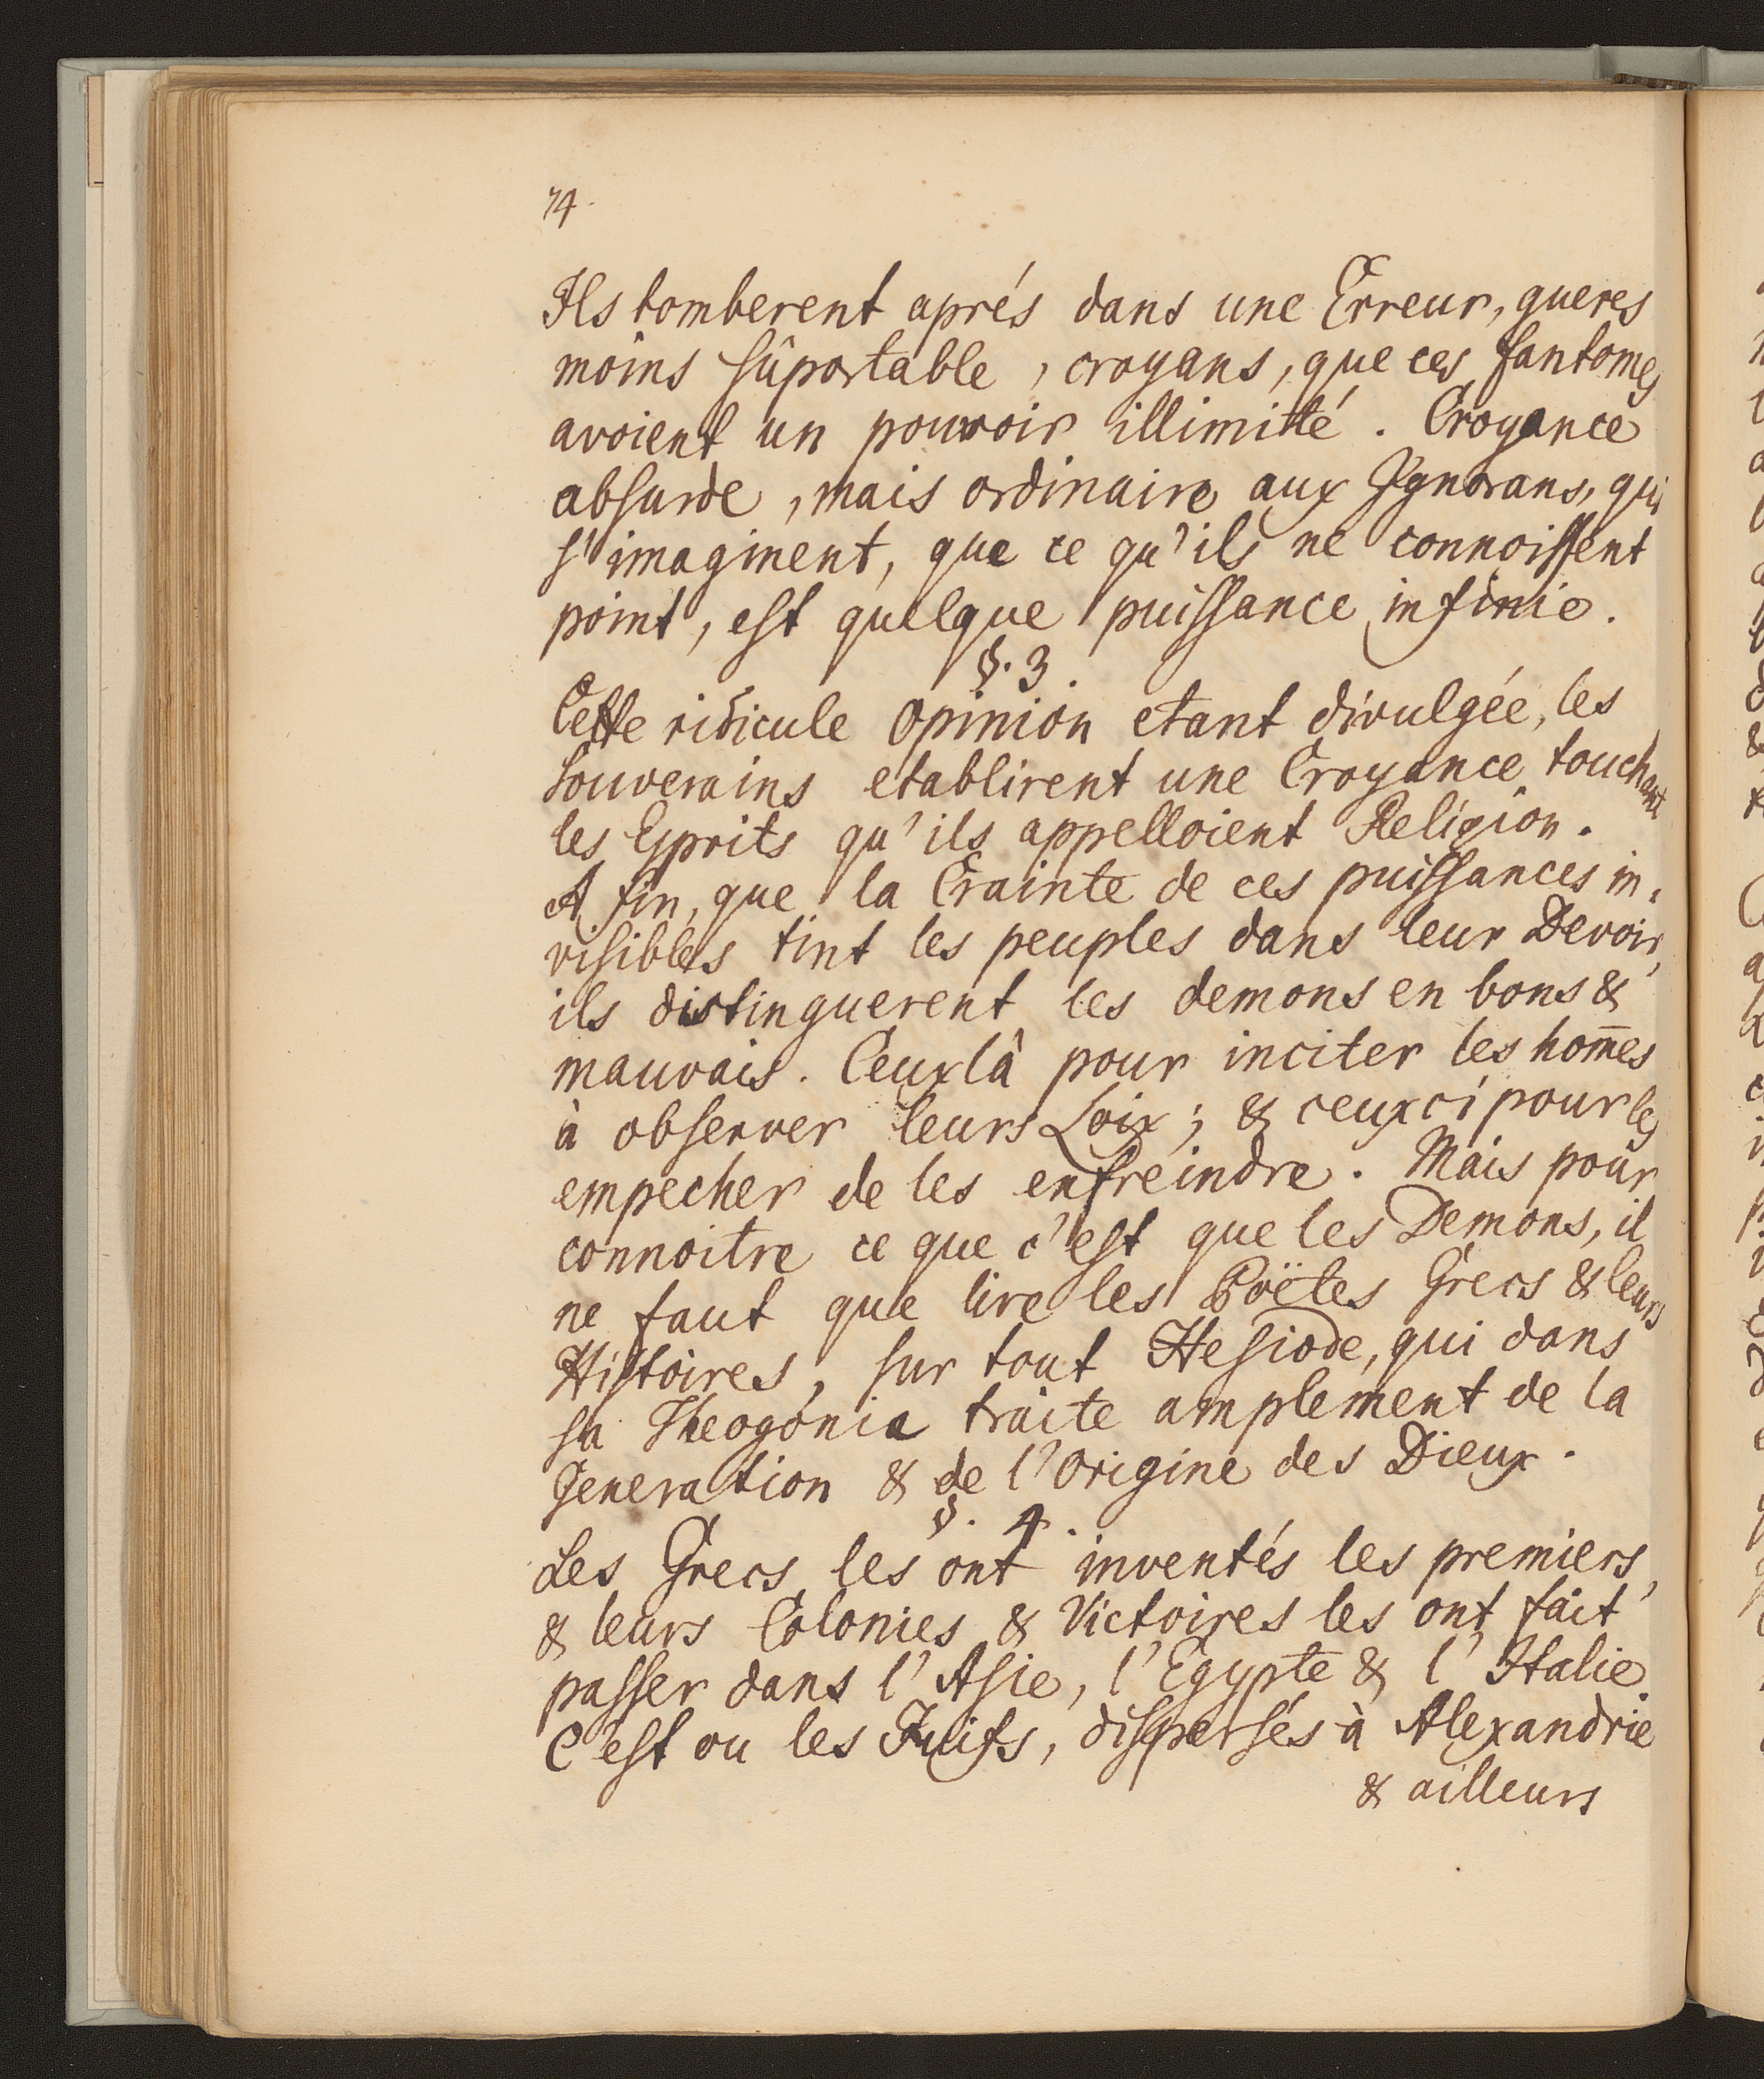 74.
Ils tomberent aprés dans une Erreur, gueres
moins sûportable, croyans, que ces fantomes
avoient un pouvoir illimitté. Croyance
absurde, mais ordinaire aux Ignorans, qui
s'imaginent, que ce qu'ils ne connoissent
point, est quelque puissance infinie.
§. 3.
Cette ridicule opinion etant divulgée, les
Souverains etablirent une Croyance touchant
les Esprits qu'ils appelloient Religion.
A fin, que la Crainte de ces puissances in,
visibles tint les peuples dans leur Devoir,
ils distinguerent les demons en bons &
mauvais. Ceux là pour inciter les hom̄es
à observer leurs Loix; & ceux ci pour les
empecher de les enfreindre. Mais pour
connoitre ce que c'est que les Demons, il
ne faut que lire les Poëtes Grecs & leurs
Histoires, sur tout Hesiode, qui dans
sa Theogonia traite amplement de la
Generation & de l'Origine des Dieux.
§. 4.
Les Grecs les ont inventés les premiers,
& leurs Colonies & Victoires les ont fait
passer dans l'Asie, l'Egypte & l'Italie
C'est ou les Juifs, dispersés à Alexandrie
& ailleurs